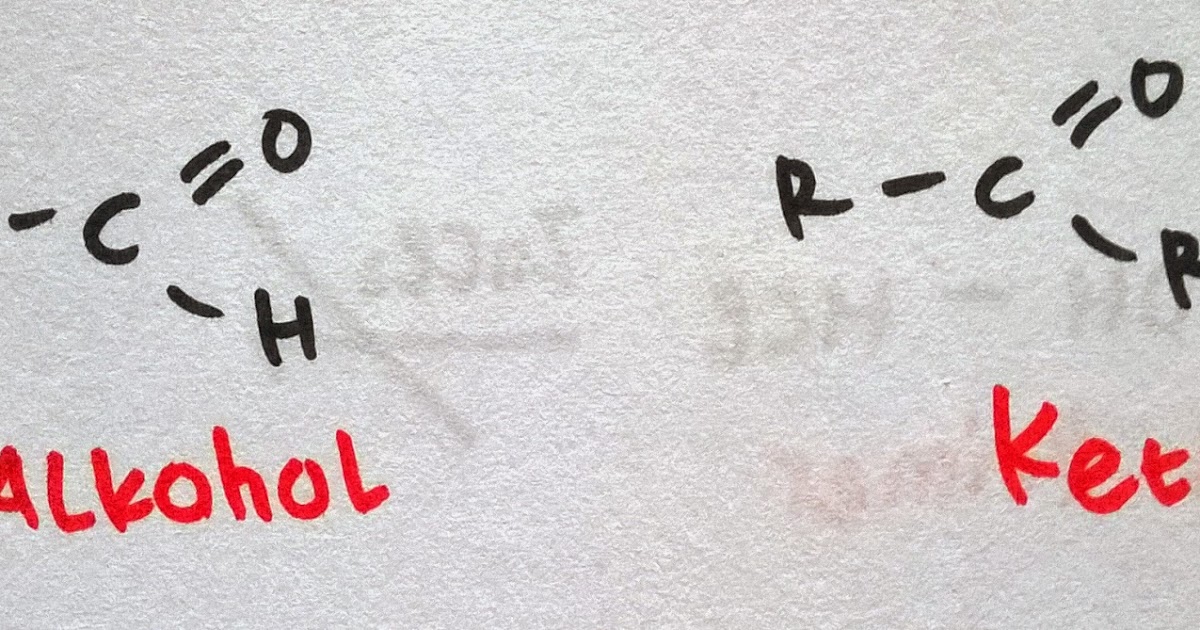 - C = O
- H
Alkohol
R - C = O
- R
Ket